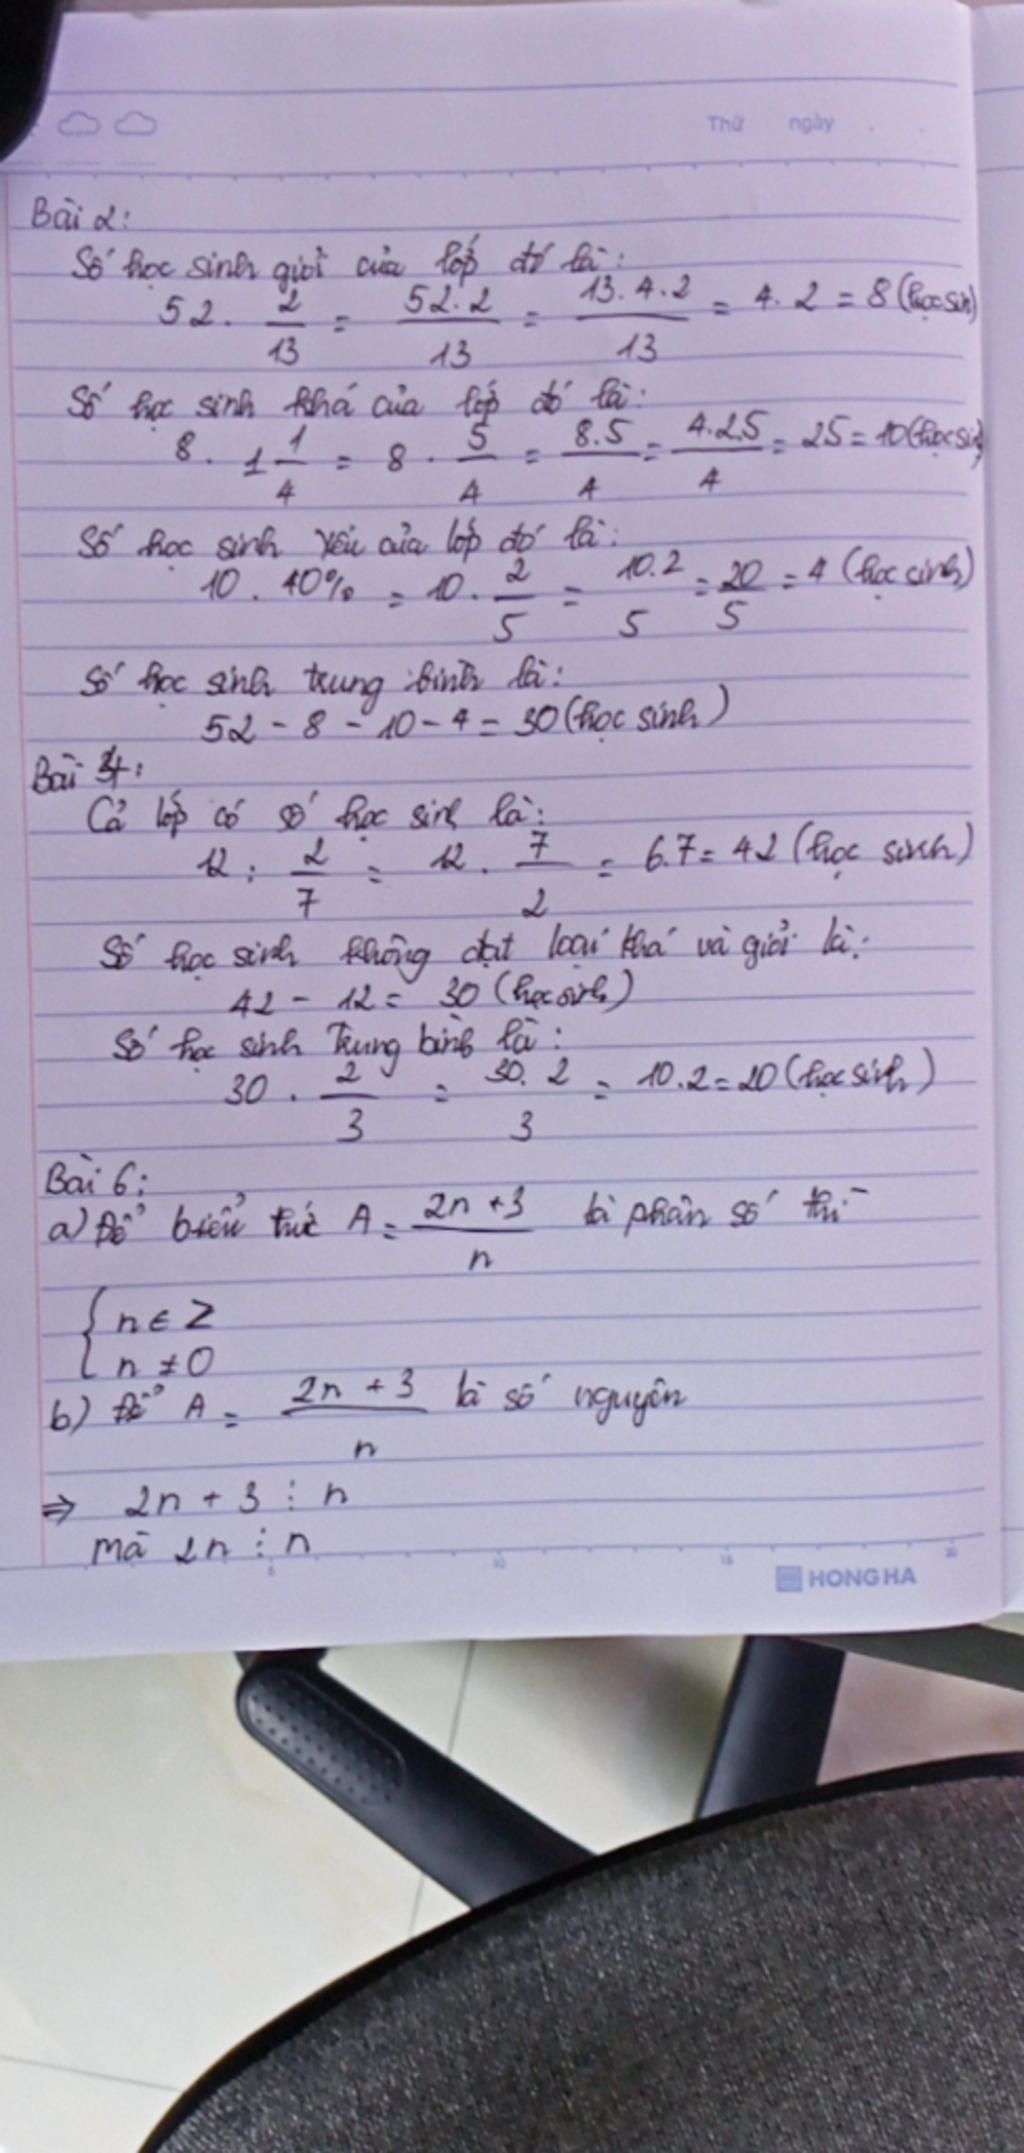 Thứ ngày
Bài 2:
Số học sinh giỏi của lớp đó là:
52 . 2/13 = 52.2/13 = 13.4.2/13 = 4.2 = 8 (học sinh)
Số học sinh khá của lớp đó là:
8 . 1 1/4 = 8 . 5/4 = 8.5/4 = 4.2.5/4 = 25 = 10 (học sinh)
Số học sinh yếu của lớp đó là:
10 . 40% = 10 . 2/5 = 10.2/5 = 20/5 = 4 (học sinh)
Số học sinh trung bình là:
52 - 8 - 10 - 4 = 30 (học sinh)
Bài 4:
Cả lớp có số học sinh là:
12 : 2/7 = 12 . 7/2 = 6.7 = 42 (học sinh)
Số học sinh không đạt loại khá và giỏi là:
42 - 12 = 30 (học sinh)
Số học sinh Trung bình là:
30 . 2/3 = 30.2/3 = 10.2 = 20 (học sinh)
Bài 6:
a) Để biểu thức A = 2n + 3/n là phân số thì
{ n ∈ Z
n ≠ 0
b) Để A = 2n + 3/n là số nguyên
⇒ 2n + 3 ⋮ n
mà 2n ⋮ n
5 10 15 20
HONG HA